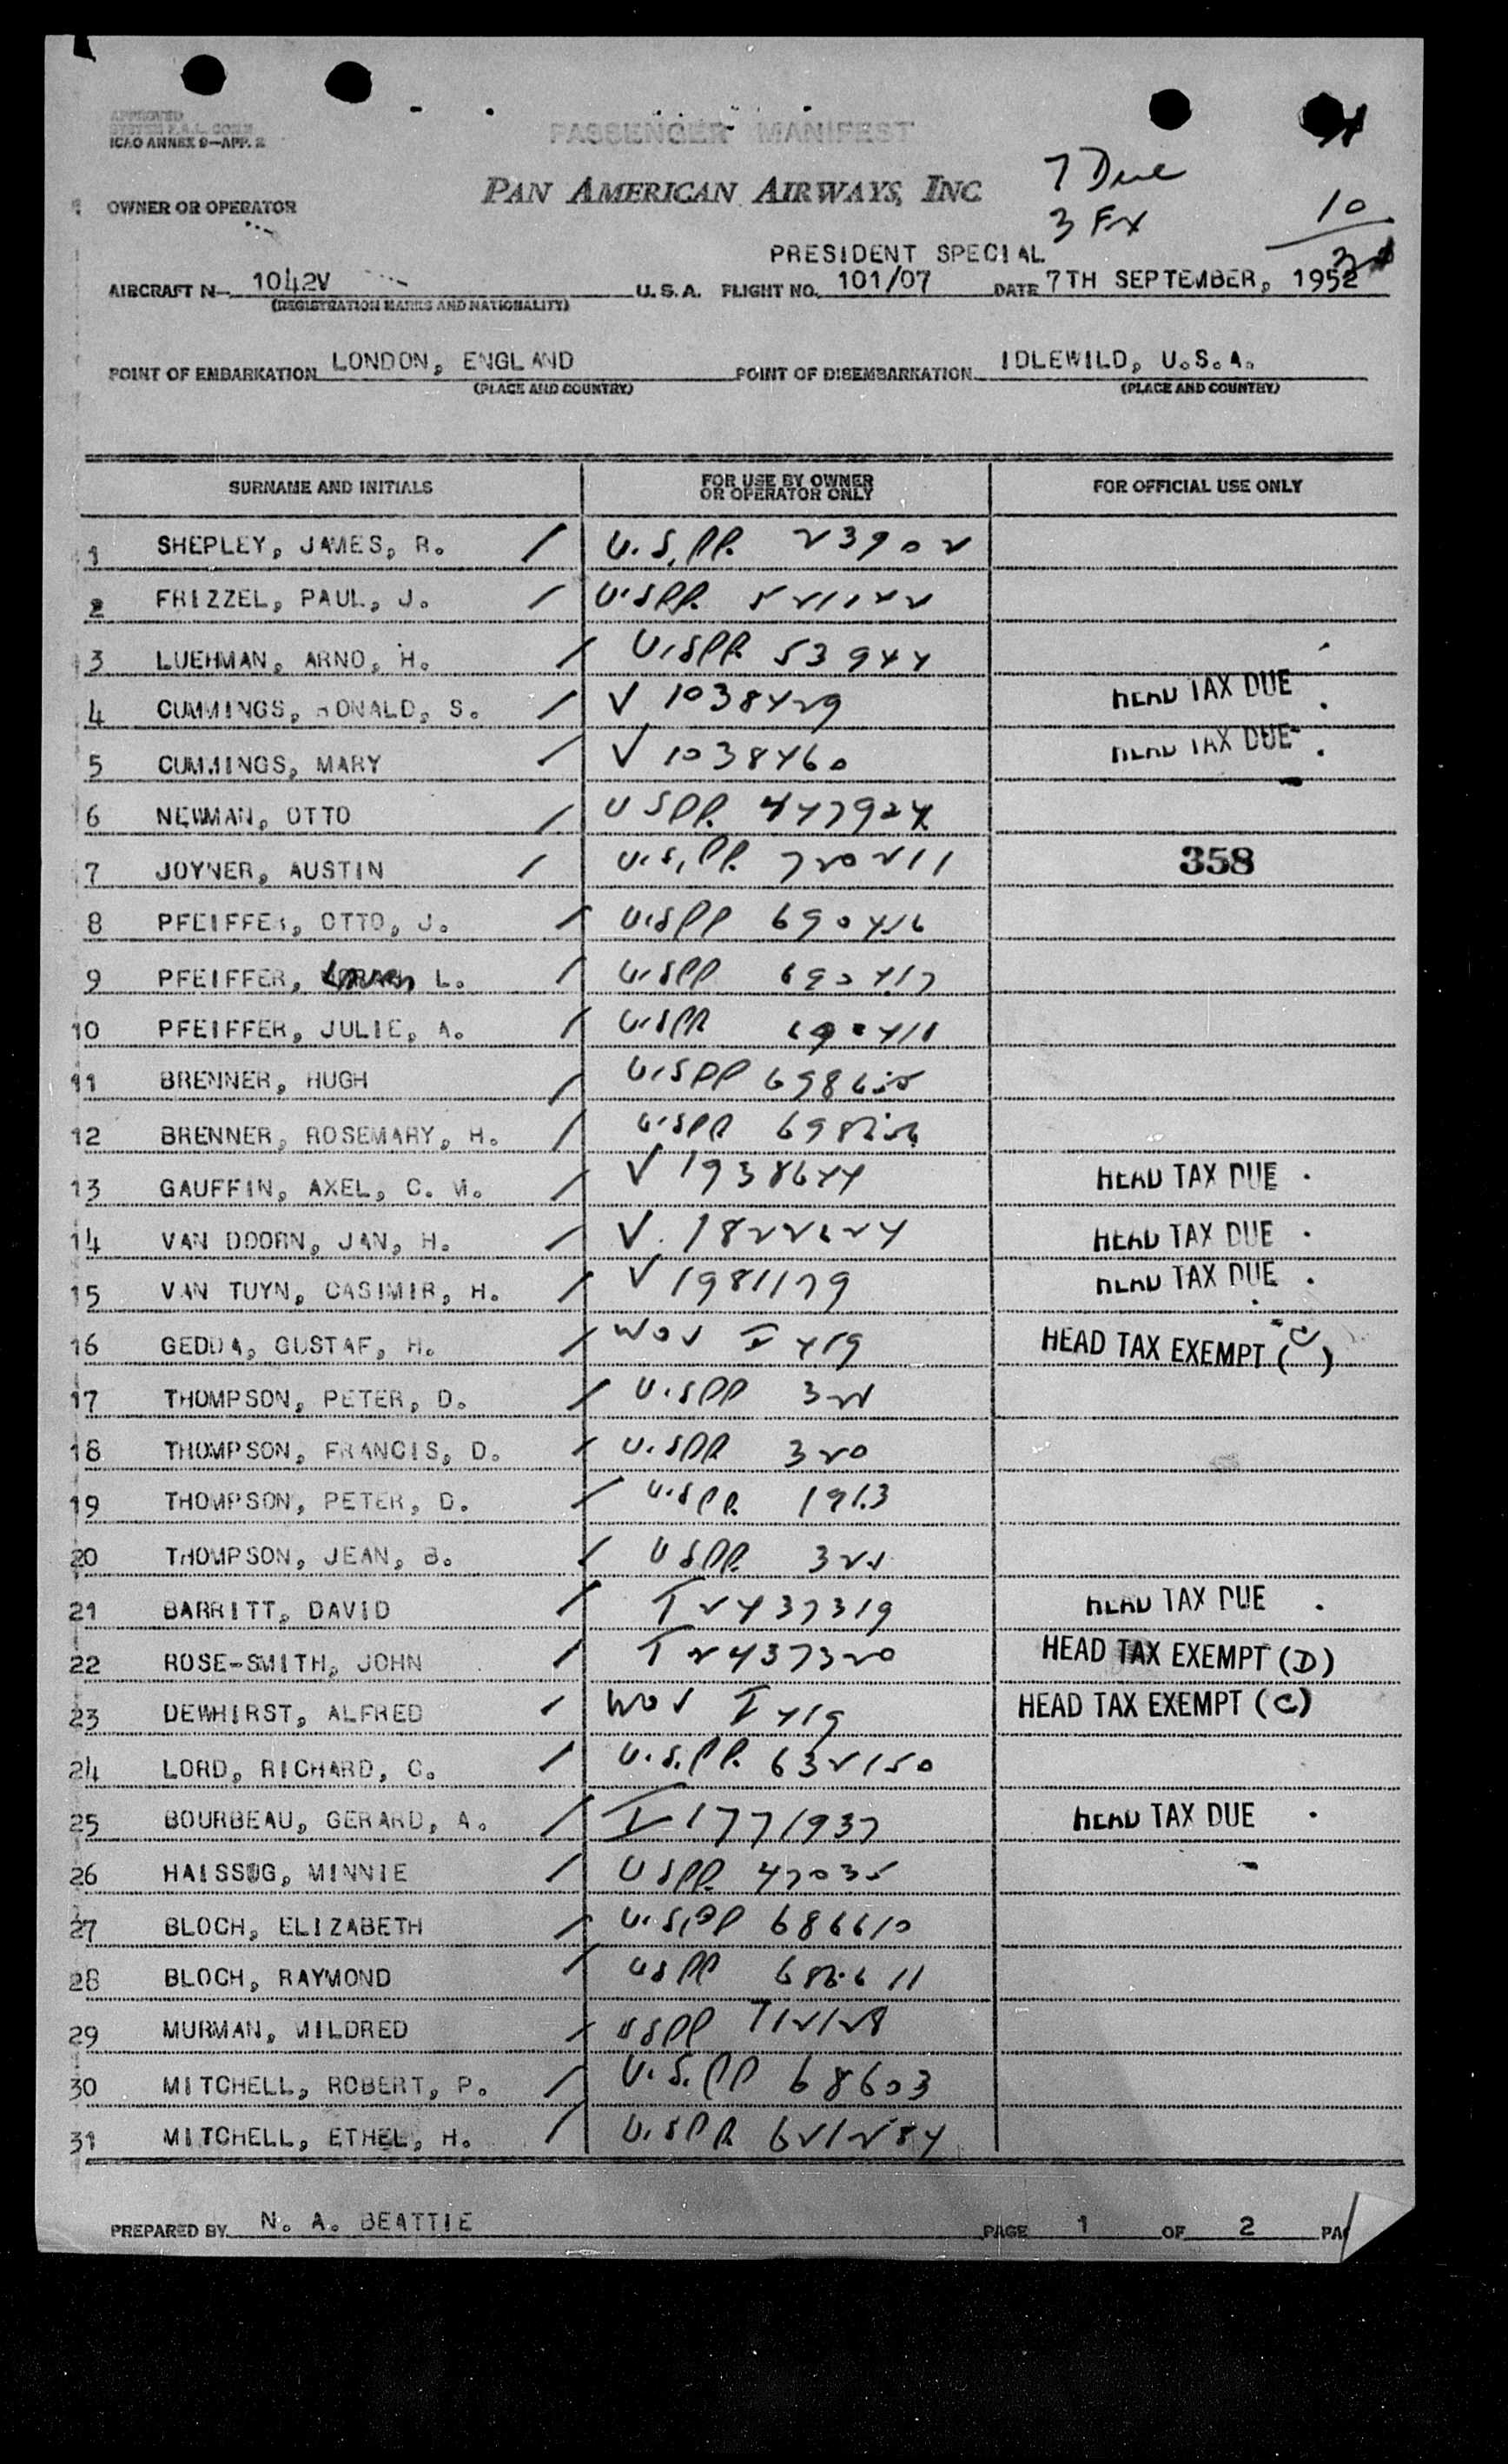 APPROVED
SYSTEM F.A.L. COM'N
ICAO ANNEX 9—APP. 2
PASSENGER MANIFEST
PAN AMERICAN AIRWAYS, INC
7 Due
3 Ex
10
OWNER OR OPERATOR
PRESIDENT SPECIAL
AIRCRAFT N— 1042V U.S.A. FLIGHT NO. 101/07 DATE 7TH SEPTEMBER, 1952
(REGISTRATION MARKS AND NATIONALITY)
POINT OF EMBARKATION LONDON, ENGLAND POINT OF DISEMBARKATION IDLEWILD, U.S.A.
(PLACE AND COUNTRY) (PLACE AND COUNTRY)
SURNAME AND INITIALS FOR USE BY OWNER OR OPERATOR ONLY FOR OFFICIAL USE ONLY
1 SHEPLEY, JAMES, R. / U.S.PP. 23902
2 FRIZZEL, PAUL, J. / U.S.PP.
3 LUEHMAN, ARNO, H. / U.S.PP. 53944
4 CUMMINGS, RONALD, S. / V 1038429 HEAD TAX DUE
5 CUMMINGS, MARY / V 1038460 HEAD TAX DUE
6 NEWMAN, OTTO / U S PP. 447924
7 JOYNER, AUSTIN / U.S.PP. 720211 358
8 PFEIFFER, OTTO, J. / U.S.PP 690416
9 PFEIFFER, L. / U.S.PP 690417
10 PFEIFFER, JULIE, A. / U.S.PP 690418
11 BRENNER, HUGH / U.S.PP 698655
12 BRENNER, ROSEMARY, H. / U.S.PP 698656
13 GAUFFIN, AXEL, C. M. / V 1938644 HEAD TAX DUE
14 VAN DOORN, JAN, H. / V. 1822624 HEAD TAX DUE
15 VAN TUYN, CASIMIR, H. / V 1981179 HEAD TAX DUE
16 GEDDA, GUSTAF, H. / I 419 HEAD TAX EXEMPT (C)
17 THOMPSON, PETER, D. / U.S.PP
18 THOMPSON, FRANCIS, D. / U.S.PP 320
19 THOMPSON, PETER, D. / U.S.PP. 1913
20 THOMPSON, JEAN, B. / U S PP.
21 BARRITT, DAVID / T 2437319 HEAD TAX DUE
22 ROSE-SMITH, JOHN / T 2437320 HEAD TAX EXEMPT (D)
23 DEWHIRST, ALFRED / I 419 HEAD TAX EXEMPT (C)
24 LORD, RICHARD, C. / U.S.PP. 632150
25 BOURBEAU, GERARD, A. / I 1771937 HEAD TAX DUE
26 HAISSUG, MINNIE / U S PP. 47035
27 BLOCH, ELIZABETH / U.S.PP 686610
28 BLOCH, RAYMOND / U S PP 686611
29 MURMAN, MILDRED / U S PP 712128
30 MITCHELL, ROBERT, P. / U.S.PP 68603
31 MITCHELL, ETHEL, H. / U.S.PP. 621284
PREPARED BY N. A. BEATTIE PAGE 1 OF 2